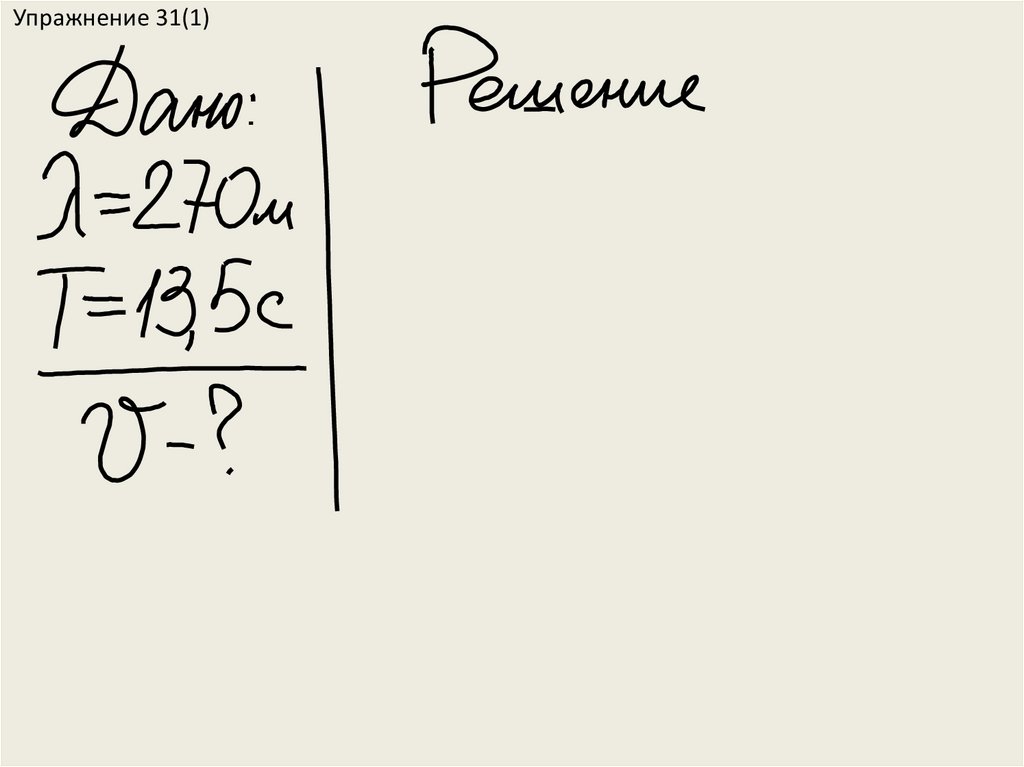 Упражнение 31(1)
Дано:
λ=270м
T=13,5с
υ-?
Решение